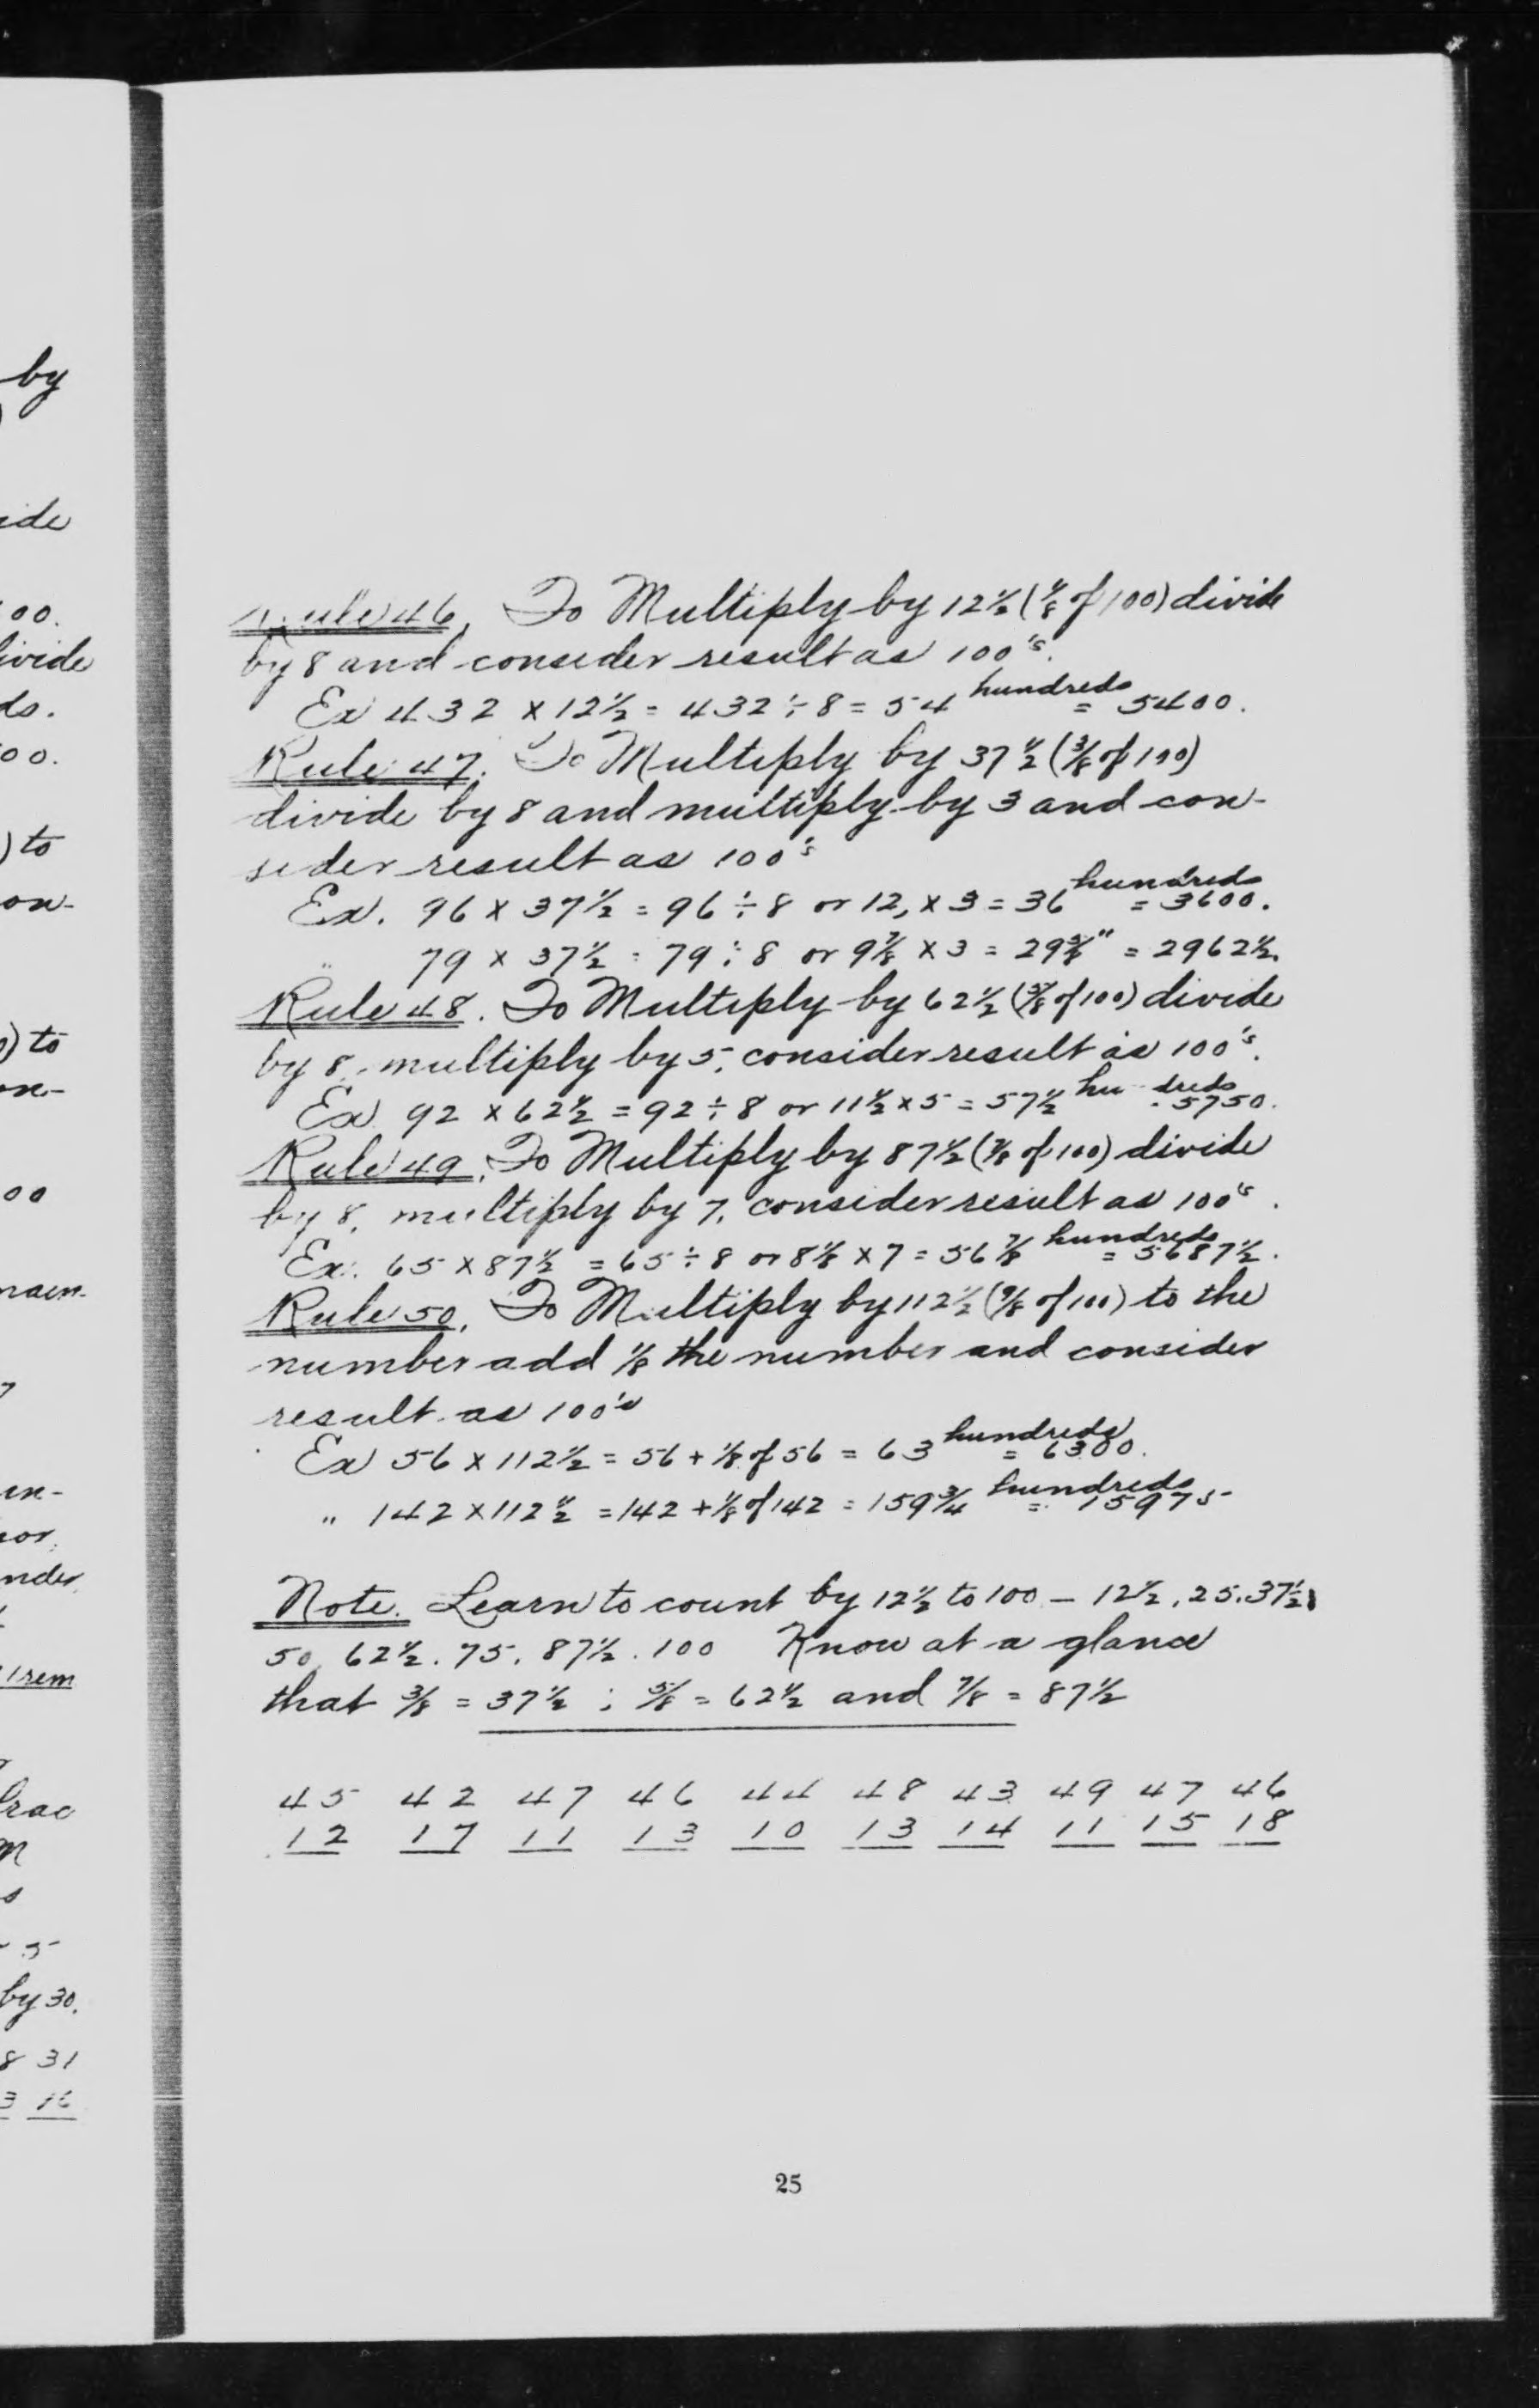 by
ide
00.
ivide
ds.
00.
) to
on-
) to
on-
00
main-
en-
nder
1 rem
frac
5
by 30.
8 31
3 16
Rule 46, To Multiply by 12½ (⅛ of 100) divide
by 8 and consider result as 100's.
Ex 432 × 12½ = 432 ÷ 8 = 54 hundreds = 5400.
Rule 47. To Multiply by 37½ (⅜ of 100)
divide by 8 and multiply by 3 and con-
sider result as 100's
Ex. 96 × 37½ = 96 ÷ 8 or 12, × 3 = 36 hundreds = 3600.
" 79 × 37½ = 79 ÷ 8 or 9⅞ × 3 = 29⅝ " = 2962½.
Rule 48. To Multiply by 62½ (⅝ of 100) divide
by 8, multiply by 5, consider result as 100's.
Ex 92 × 62½ = 92 ÷ 8 or 11½ × 5 = 57½ hundreds = 5750.
Rule 49. To Multiply by 87½ (⅞ of 100) divide
by 8, multiply by 7, consider result as 100's.
Ex. 65 × 87½ = 65 ÷ 8 or 8⅛ × 7 = 56⅞ hundreds = 5687½.
Rule 50. To Multiply by 112½ (9/8 of 100) to the
number add ⅛ the number and consider
result as 100's
Ex 56 × 112½ = 56 + ⅛ of 56 = 63 hundreds = 6300.
" 142 × 112½ = 142 + ⅛ of 142 = 159¾ hundreds = 15975
Note. Learn to count by 12½ to 100 – 12½, 25, 37½,
50, 62½. 75, 87½. 100 Know at a glance
that ⅜ = 37½ ; ⅝ = 62½ and ⅞ = 87½
45 42 47 46 44 48 43 49 47 46
12 17 11 13 10 13 14 11 15 18
25